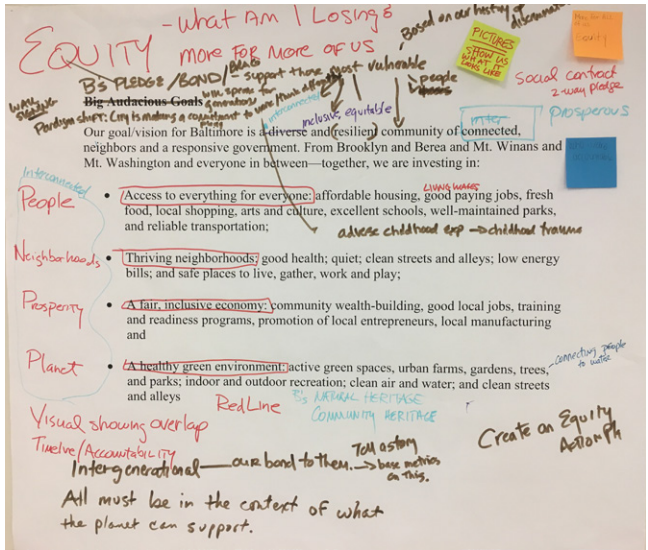 EQUITY
- What Am I Losing &
more for more of us
Based on our history of
PICTURES
SHOW US
WHAT IT
LOOKS LIKE
Equity
B's PLEDGE/BOND/
- support those most vulnerable
people
Social contract
2-way pledge
Big Audacious Goals
generations
Paradigm shift: City is making a commitment to work
interconnected
inclusive, equitable
inter
prosperous
Our goal/vision for Baltimore is a diverse and resilient community of connected,
neighbors and a responsive government. From Brooklyn and Berea and Mt. Winans and
Mt. Washington and everyone in between—together, we are investing in:
Interconnected
People
LIVING WAGES
• Access to everything for everyone: affordable housing, good paying jobs, fresh
food, local shopping, arts and culture, excellent schools, well-maintained parks,
and reliable transportation;
adverse childhood exp → childhood trauma
Neighborhoods
• Thriving neighborhoods; good health; quiet; clean streets and alleys; low energy
bills; and safe places to live, gather, work and play;
Prosperity
• A fair, inclusive economy: community wealth-building, good local jobs, training
and readiness programs, promotion of local entrepreneurs, local manufacturing
and
Planet
• A healthy green environment: active green spaces, urban farms, gardens, trees,
and parks; indoor and outdoor recreation; clean air and water; and clean streets
and alleys
- connecting people
to water
RedLine
B's NATURAL HERITAGE
COMMUNITY HERITAGE
Visual showing overlap
Timeline/Accountability
Intergenerational — our bond to them.
Tell a story
→ base metrics
on this.
Create an Equity
Action
All must be in the context of what
the planet can support.